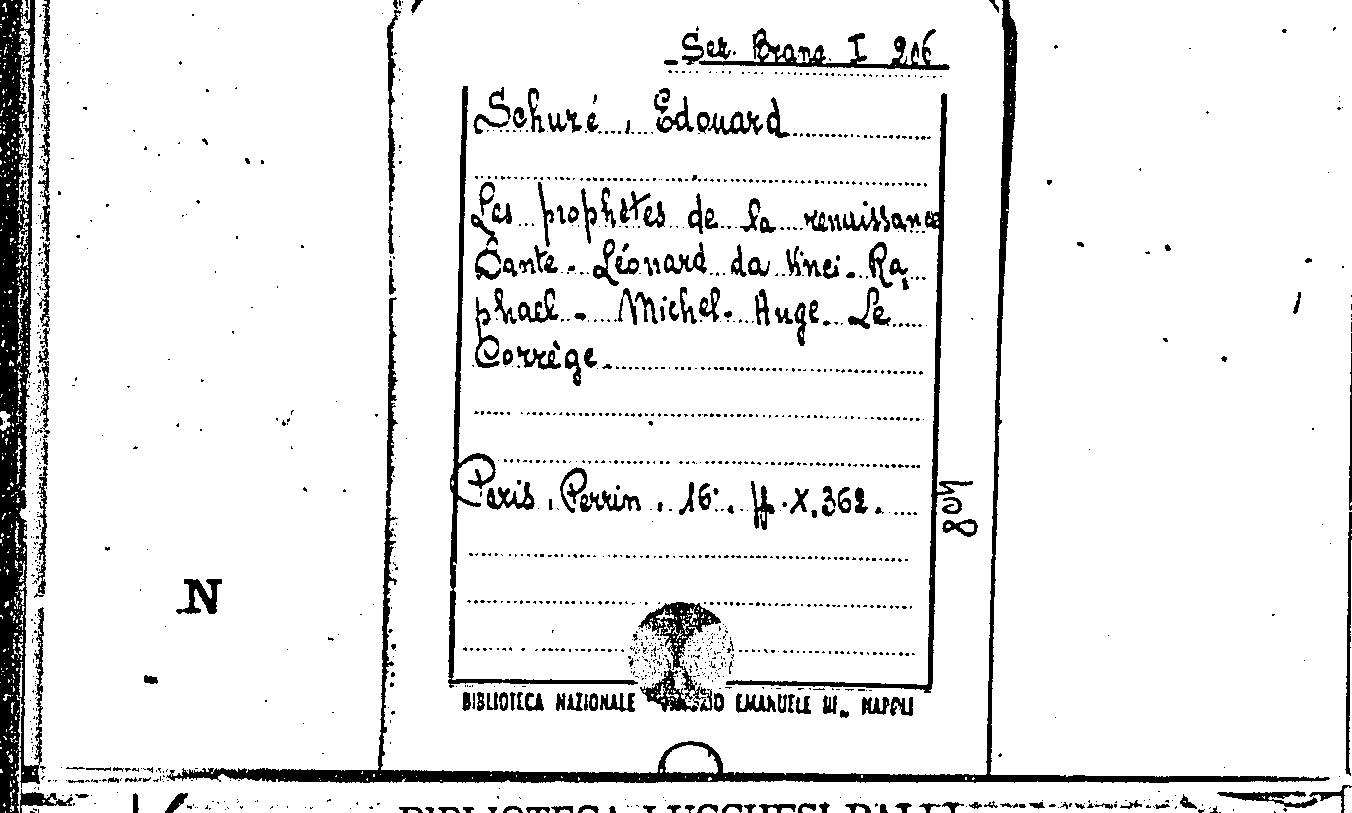 Sez. Branc. I 206
Schuré, Edouard
Les prophètes de la renaissance
Dante - Léonard da Vinci - Ra
phael - Michel-Ange - Le
Corrège.
Paris, Perrin, 16°. pp. X, 362.
804
N
BIBLIOTECA NAZIONALE EMANUELE III„ NAPOLI
BIBLIOTECA LUCCHESI PALLI